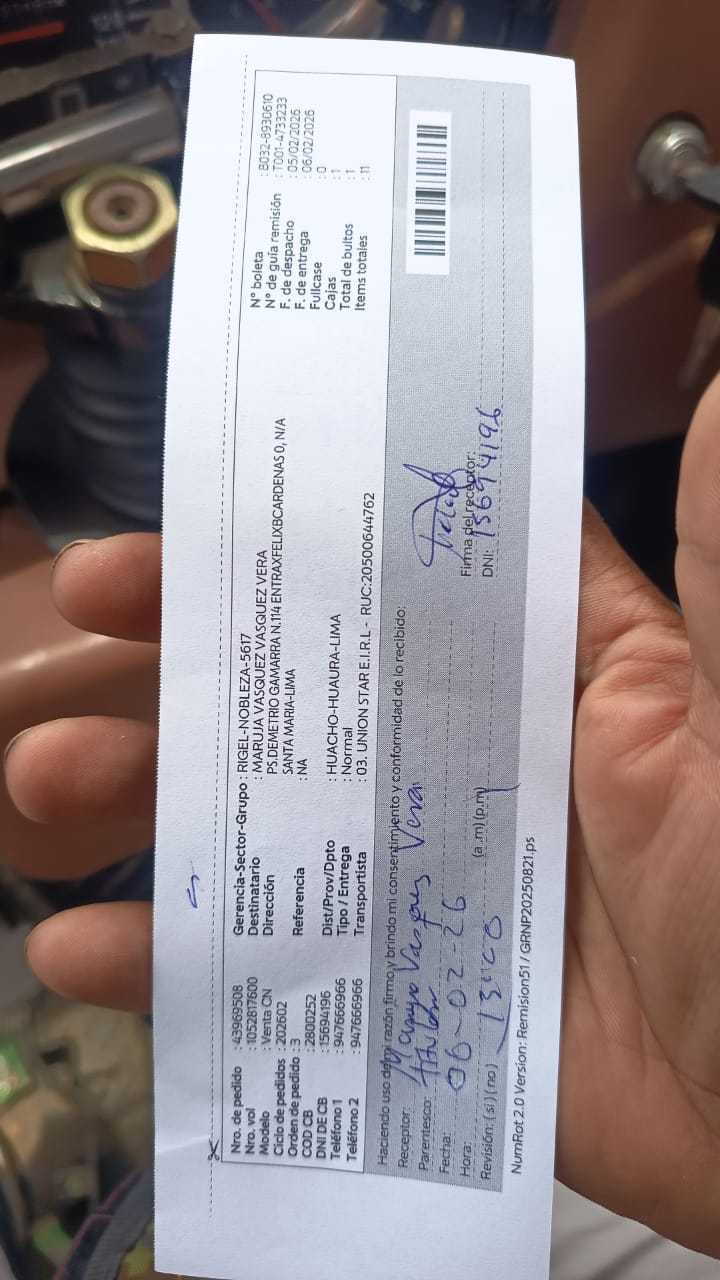 Nro. de pedido : 43969508
Nro. vol : 1052817600
Modelo : Venta CN
Ciclo de pedidos : 202602
Orden de pedido : 3
COD CB : 2800252
DNI DE CB : 15694196
Teléfono 1 : 947666966
Teléfono 2 : 947666966
Gerencia-Sector-Grupo : RIGEL-NOBLEZA-5617
Destinatario : MARUJA VASQUEZ VASQUEZ VERA
Dirección PS.DEMETRIO GAMARRA N.114 ENTRAXFELIXBCARDENAS 0, N/A
SANTA MARIA-LIMA
Referencia : NA
Dist/Prov/Dpto : HUACHO-HUAURA-LIMA
Tipo / Entrega : Normal
Transportista : 03. UNION STAR E.I.R.L - RUC:20500644762
N° boleta : B032-8930610
N° de guía remisión : T001-4733233
F. de despacho : 05/02/2026
F. de entrega : 06/02/2026
Fullcase : 0
Cajas : 1
Total de bultos : 1
Items totales : 11
Haciendo uso de mi razón firmo y brindo mi consentimiento y conformidad de lo recibido:
Receptor: Vasquez Vera
Parentesco: titular
Fecha: 06-02-26
Hora: (a .m) (p.m)
Revisión: (si) (no)
Firma del receptor:
DNI: 15694196
NumRot 2.0 Version: Remision51 / GRNP20250821.ps